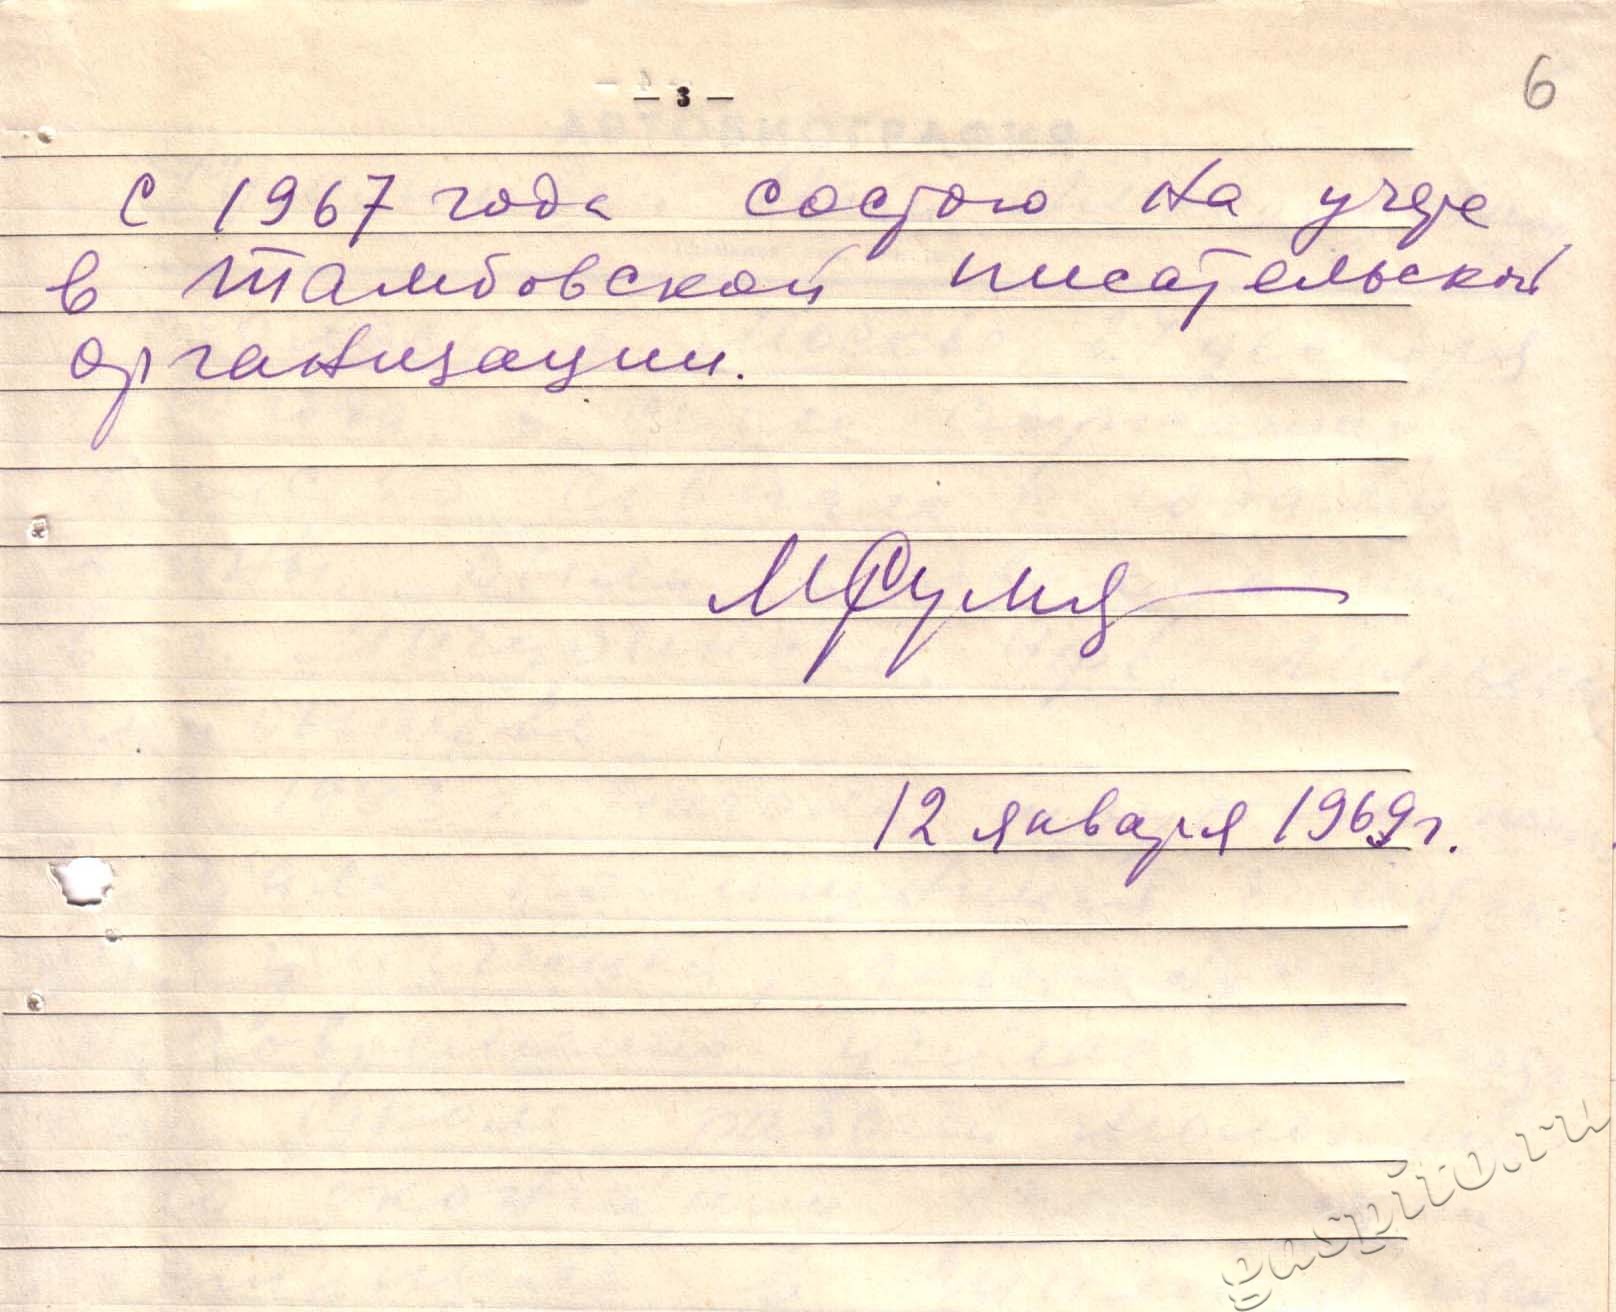 — 3 —
6
С 1967 года состою на учете
в Тамбовской писательской
организации.
12 января 1969 г.
gaspito.ru